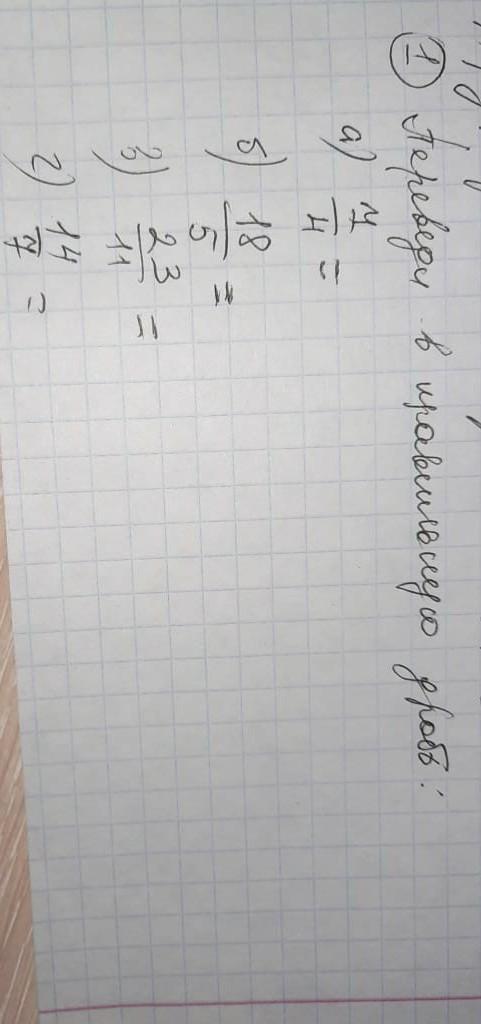 ① Переведи в правильную дробь:
а) 7/4 =
б) 18/5 =
в) 23/11 =
г) 14/7 =